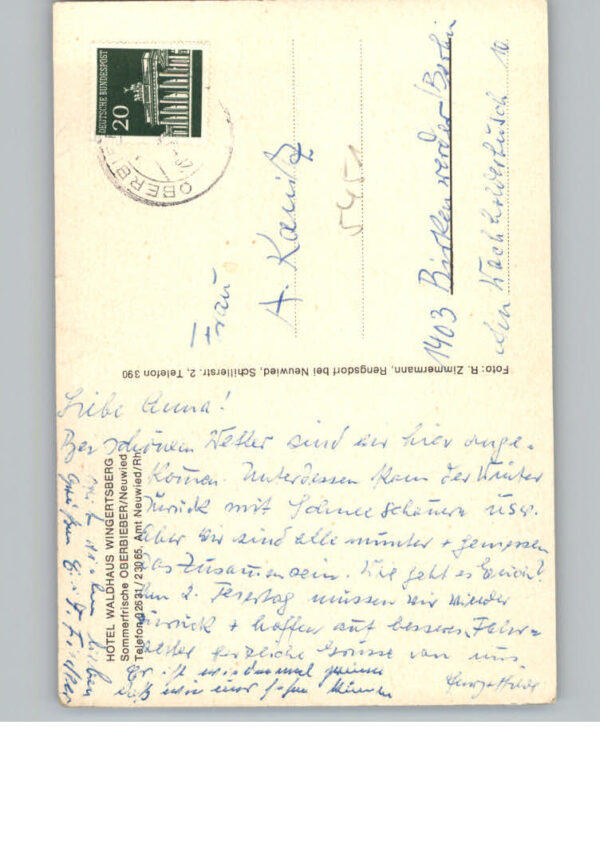 DEUTSCHE BUNDESPOST
20
OBERBIE
Frau
A. Kanitz
5451
1403 Birkenwerder/Berlin
Am Wachholderbusch 10
Foto: R. Zimmermann, Rengsdorf bei Neuwied, Schillerstr. 2, Telefon 390
HOTEL WALDHAUS WINGERTSBERG
Sommerfrische OBERBIEBER/Neuwied
Telefon 02631/23065. Amt Neuwied/Rh
Liebe Anna!
Bei schönem Wetter sind wir hier ange-
kommen. Unterdessen kam der Winter
zurück mit Schneeschauern usw.
Aber wir sind alle munter + geniessen
das Zusammensein. Wie geht es Euch?
Am 2. Feiertag müssen wir wieder
zurück + hoffen auf besseres Fahr-
wetter herzliche Grüsse von uns
Es ist wiedermal
daß wir uns sehen können